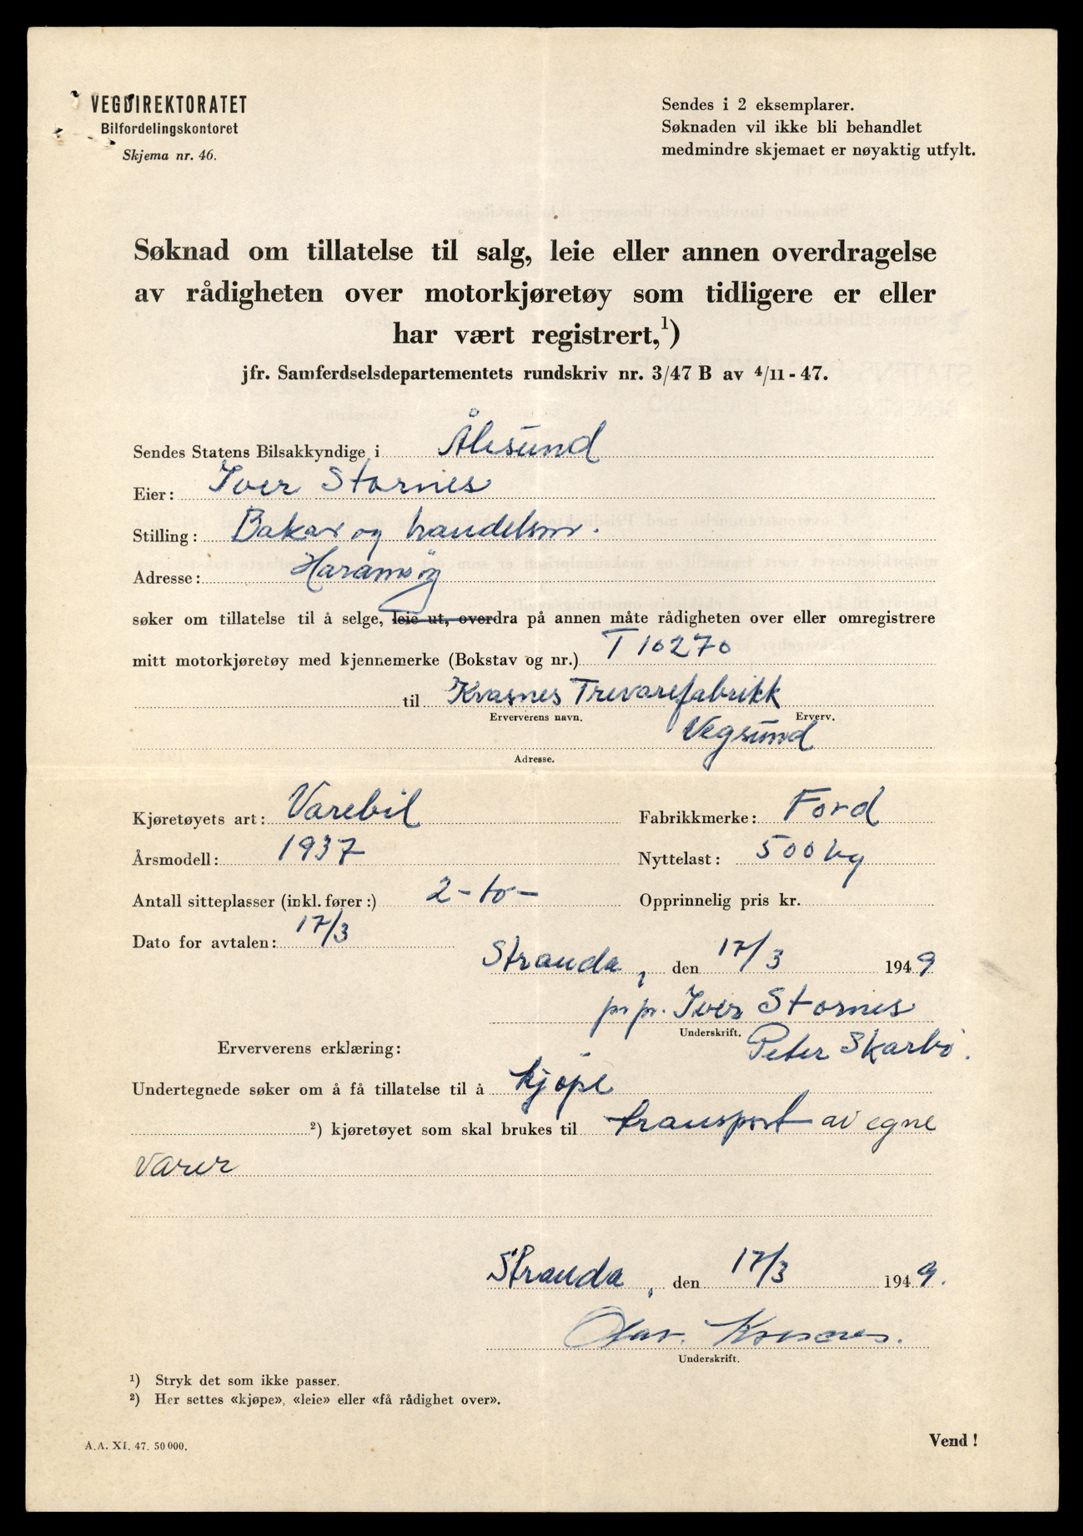 VEGDIREKTORATET
Bilfordelingskontoret
Skjema nr. 46.
Sendes i 2 eksemplarer.
Søknaden vil ikke bli behandlet
medmindre skjemaet er nøyaktig utfylt.
Søknad om tillatelse til salg, leie eller annen overdragelse
av rådigheten over motorkjøretøy som tidligere er eller
har vært registrert,¹)
jfr. Samferdselsdepartementets rundskriv nr. 3/47 B av 4/11 - 47.
Sendes Statens Bilsakkyndige i Ålesund
Eier: Iver Stornes
Stilling: Bakar og handelsm.
Adresse: Haramsøy
søker om tillatelse til å selge, leie ut, overdra på annen måte rådigheten over eller omregistrere
mitt motorkjøretøy med kjennemerke (Bokstav og nr.) T 10270
til Kvasnes Trevarefabrikk
Erververens navn. Erverv.
Vegsund
Adresse.
Kjøretøyets art: Varebil Fabrikkmerke: Ford
Årsmodell: 1937 Nyttelast: 500 kg
Antall sitteplasser (inkl. fører:) 2 - to - Opprinnelig pris kr.
Dato for avtalen: 17/3
Stranda, den 17/3 1949
pr. pr. Iver Stornes
Underskrift.
Peter Skarbø.
Erververens erklæring:
Undertegnede søker om å få tillatelse til å kjøpe
²) kjøretøyet som skal brukes til transport av egne
varer
Stranda, den 17/3 1949.
Olav Kvasnes.
Underskrift.
¹) Stryk det som ikke passer.
²) Her settes «kjøpe», «leie» eller «få rådighet over».
A.A. XI. 47. 50 000.
Vend !